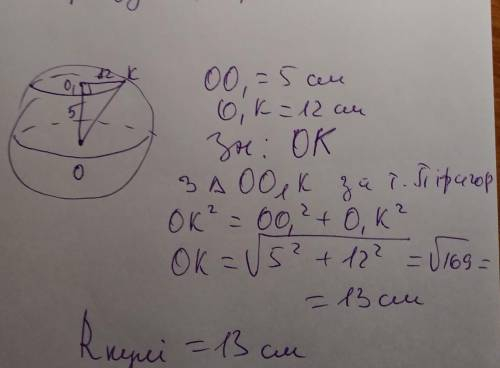 12 K
O₁
5
O
OO₁ = 5 см
O₁K = 12 см
Зн: OK
З Δ OO₁K за т. Піфагор
OK² = OO₁² + O₁K²
OK = √5² + 12² = √169 =
= 13 см
Rкулі = 13 см